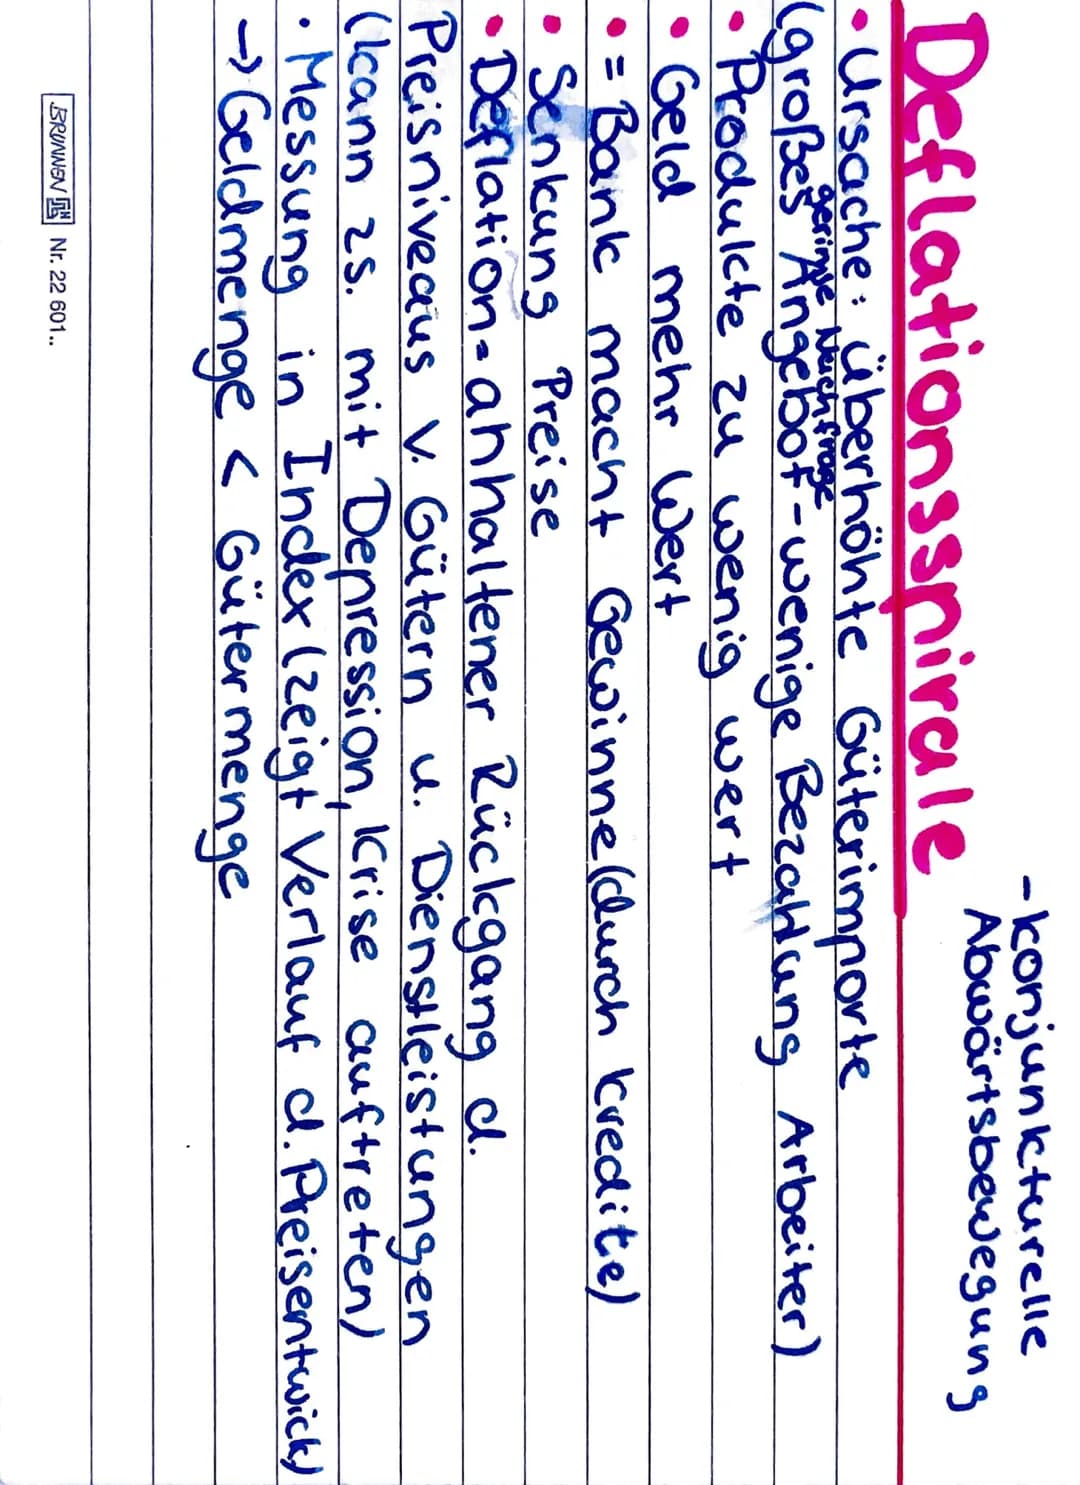 Deflationsspirale
- konjunkturelle
Abwärtsbewegung
• Ursache: überhöhte Güterimporte
geringe Nachfrage
(großes Angebot - wenige Bezahlung Arbeiter)
• Produkte zu wenig wert
• Geld mehr Wert
• = Bank macht Gewinne (durch Kredite)
• Senkung Preise
• Deflation = anhaltener Rückgang d.
Preisniveaus v. Gütern u. Dienstleistungen
(kann zs. mit Depression, Krise auftreten)
• Messung in Index (zeigt Verlauf d. Preisentwick)
→ Geldmenge < Gütermenge
BRUNNEN Nr. 22 601..